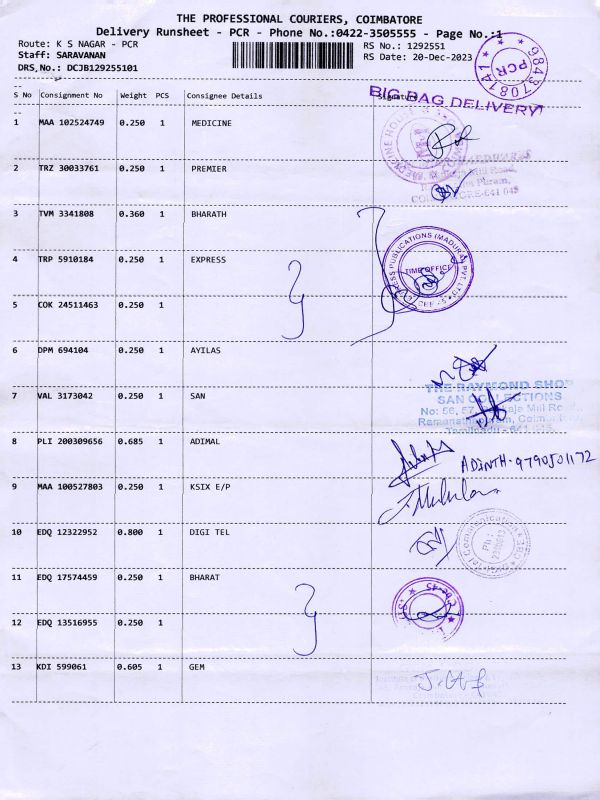 THE PROFESSIONAL COURIERS, COIMBATORE
Delivery Runsheet - PCR - Phone No.:0422-3505555 - Page No.:1
Route: K S NAGAR - PCR
RS No.: 1292551
Staff: SARAVANAN
RS Date: 20-Dec-2023
DRS,No.: DCJB129255101
PCR
9843708741
BIG BAG DELIVERY
S No Consignment No Weight PCS Consignee Details Signature
1 MAA 102524749 0.250 1 MEDICINE
2 TRZ 30033761 0.250 1 PREMIER
3 TVM 3341808 0.360 1 BHARATH
4 TRP 5910184 0.250 1 EXPRESS
PUBLICATIONS (MADURAI) PVT. LTD
TIME OFFICE
5 COK 24511463 0.250 1
6 DPM 694104 0.250 1 AYILAS
7 VAL 3173042 0.250 1 SAN
THE RAYMOND SHOP
SAN COLLECTIONS
8 PLI 200309656 0.685 1 ADIMAL
ADINTH-9790501172
9 MAA 100527803 0.250 1 KSIX E/P
10 EDQ 12322952 0.800 1 DIGI TEL
11 EDQ 17574459 0.250 1 BHARAT
12 EDQ 13516955 0.250 1
13 KDI 599061 0.605 1 GEM